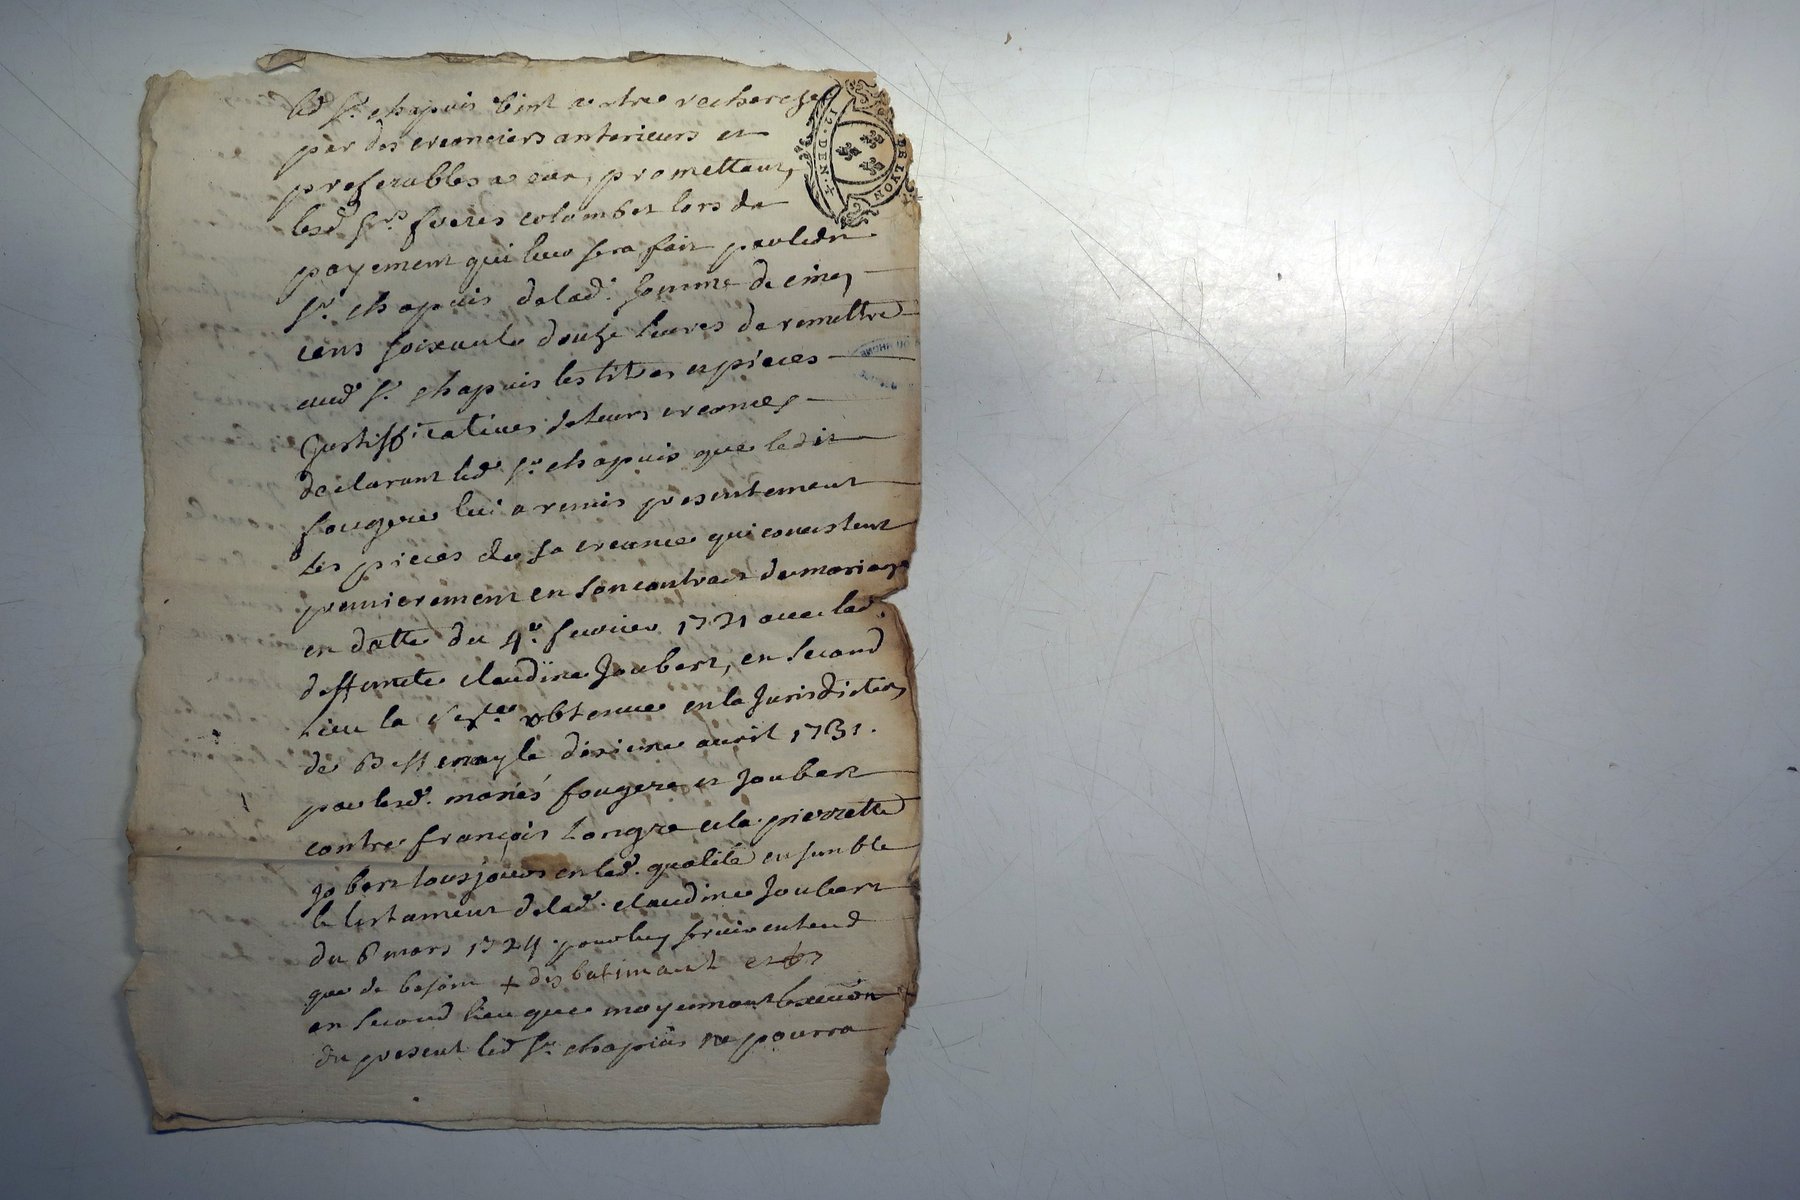 led. Sr. chapuis vint a estre recherché
par des creanciers anterieurs et
preferables a eux, promettant,
lesd. Srs. freres colombet lors du
payement qui leur sera fait par ledit
Sr. chapuis de lad. somme de cinq
cens soixante douze livres de remettre
aud. Sr. chapuis les titres et pieces
Justifficatives de leurs creances
declarant led. Sr. chapuis que ledit
fougere lui a remis presentement
les pieces de sa creance qui consistent
premierement en son contract de mariage
en datte du 4e. fevrier 1721 avec lad.
deffunte claudine Joubert, en second
lieu la obtenue en la Jurisdiction
de Bessenay le dixieme avril 1731.
par lesd. mariés fougere et Joubert
contre françois Longre et la pierrette
Jobert tousjours en lad. qualité ensemble
le testament de lad. claudine Joubert
du 6 mars 1724 pour luy servir entend
que de besoin + des batiment et
en second lieu que moyennant
du present led. Sr. chapuis ne pourra
12. DEN. DE LYON